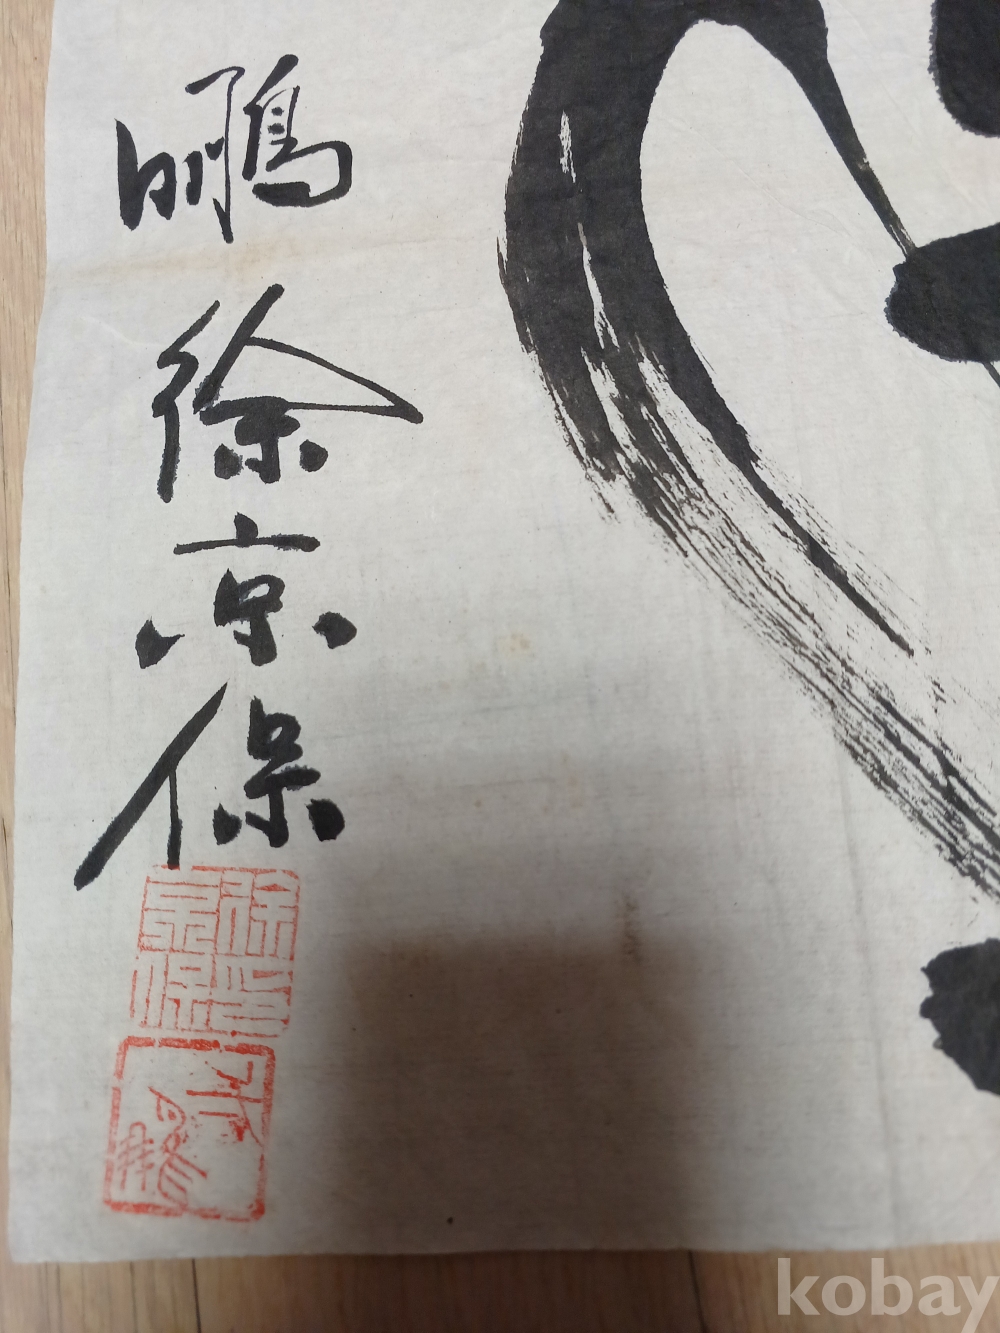 鵬
徐京保
徐京保印
kobay